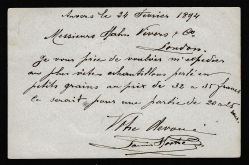 Anvers le 24 Février 1894
Messieurs Hahn Vivers & Co,
London.
je vous prie de vouloir m'expédier
au plus vite échantillons perle en
petits grains au prix de 32 à 35 francs
ce serait pour une partie de 20 à 25
Votre dévoué